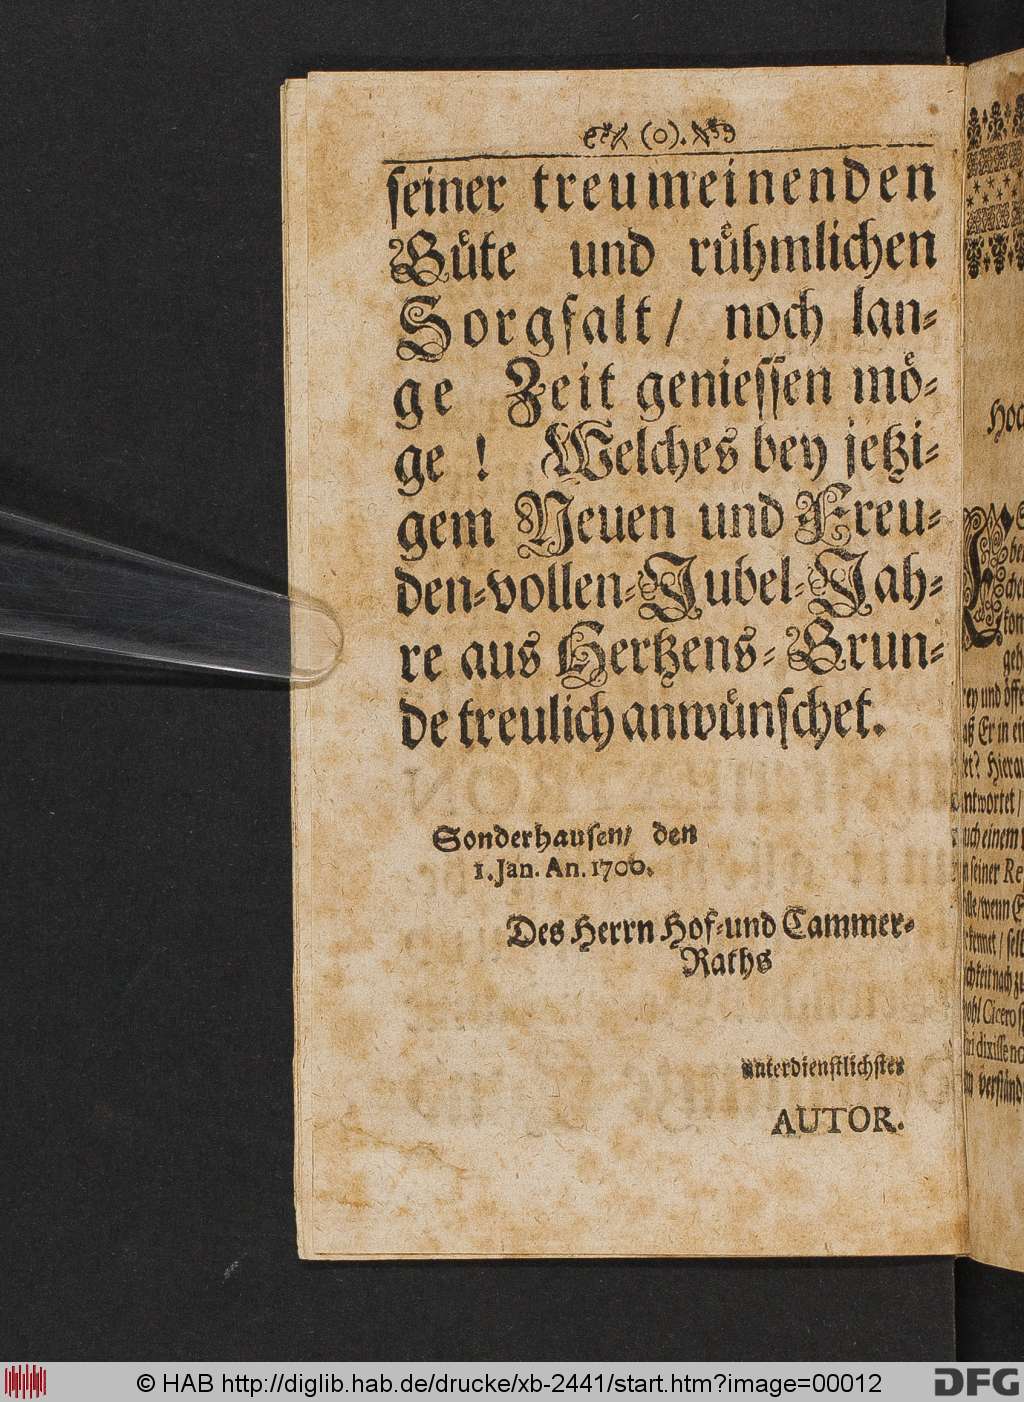 (o).
seiner treumeinenden
Güte und rühmlichen
Sorgfalt / noch lan⸗
ge Zeit geniessen mö⸗
ge ! Welches bey jetzi⸗
gem Neuen und Freu⸗
den⸗vollen⸗Jubel⸗Jah⸗
re aus Hertzens⸗Grun⸗
de treulich anwünschet.
Sonderhausen/ den
1. Jan. An. 1700.
Des Herrn Hof⸗und Cammer⸗
Raths
unterdienstlichster
AUTOR.
Hoc
ey und öffe
aß Er in ei
et? Hierau
antwortet /
auch einem
n seiner Re
wenn E
kennet / selb
chkeit nach zu
ohl Cicero
dixisse no
verständ
© HAB http://diglib.hab.de/drucke/xb-2441/start.htm?image=00012
DFG